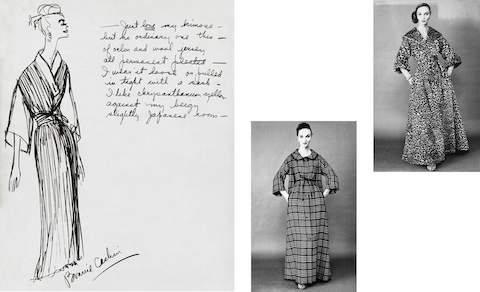 — Just love my kimono —
but no ordinary one this —
of orlon and wool jersey
all permanent pleated —
I wear it loose or pulled
in tight with a sash —
I like chrysanthemum yellow
against my beige
slightly Japanese room —
Bonnie Cashin